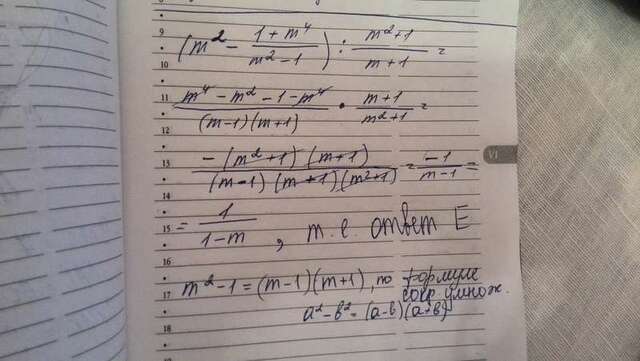 9
(m² - (1 + m⁴)/(m² - 1)) : (m² + 1)/(m + 1) =
10
11
(m⁴ - m² - 1 - m⁴)/((m-1)(m+1)) · (m+1)/(m²+1) =
12
13
(-(m²+1)(m+1))/((m-1)(m+1)(m²+1)) = -1/(m-1) =
VI
14
15
= 1/(1-m), т.е. ответ E
16
17
m² - 1 = (m-1)(m+1), по формуле
сокр умнож.
a² - b² = (a-b)(a+b)
18